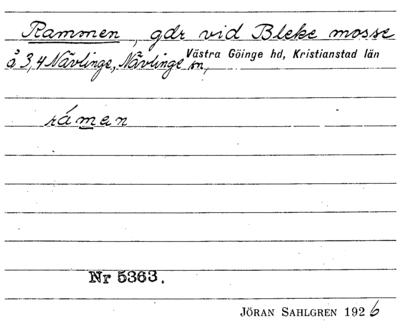 Rammen, gdr vid Bleke mosse
å 3,4 Nävlinge, Nävlinge sn, Västra Göinge hd, Kristianstad län
råmen
Nr 5363.
JÖRAN SAHLGREN 1926